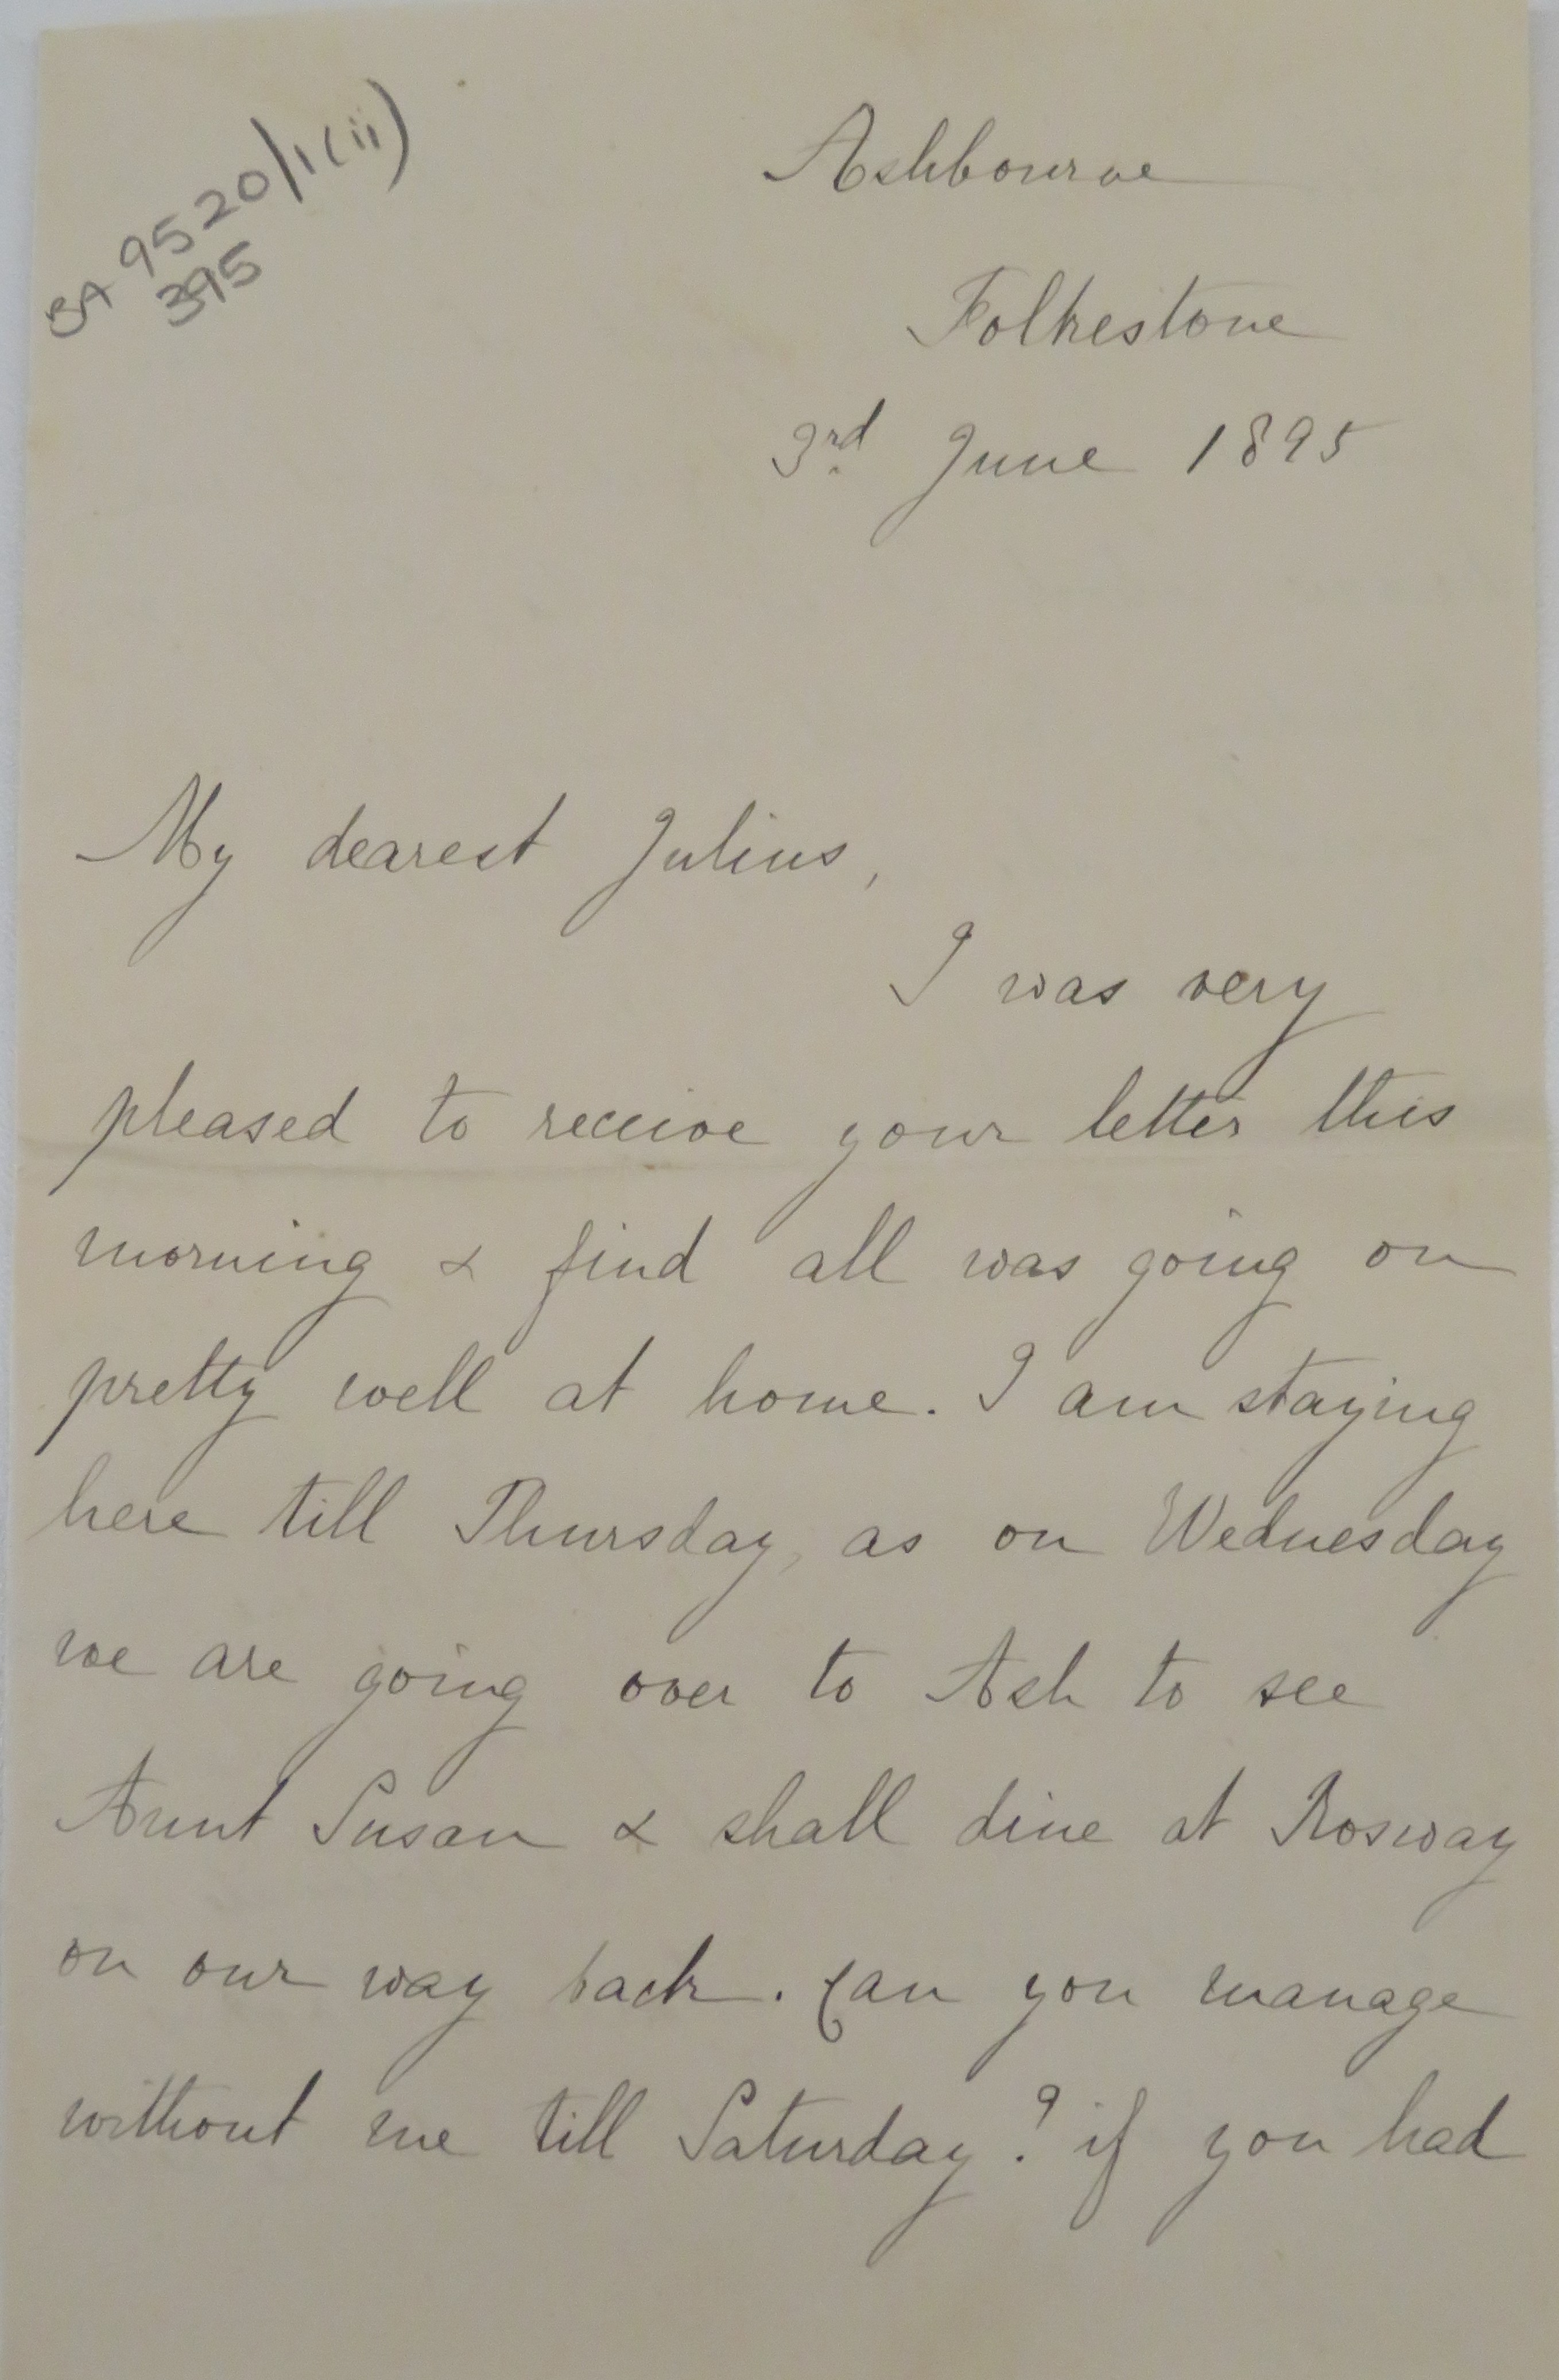 BA 9520/1(ii)
395
Ashbourne
Folkestone
3rd June 1895
My dearest Julius,
I was very
pleased to receive your letter this
morning & find all was going on
pretty well at home. I am staying
here till Thursday, as on Wednesday
we are going over to Ash to see
Aunt Susan & shall dine at Rosway
on our way back. Can you manage
without me till Saturday? if you had